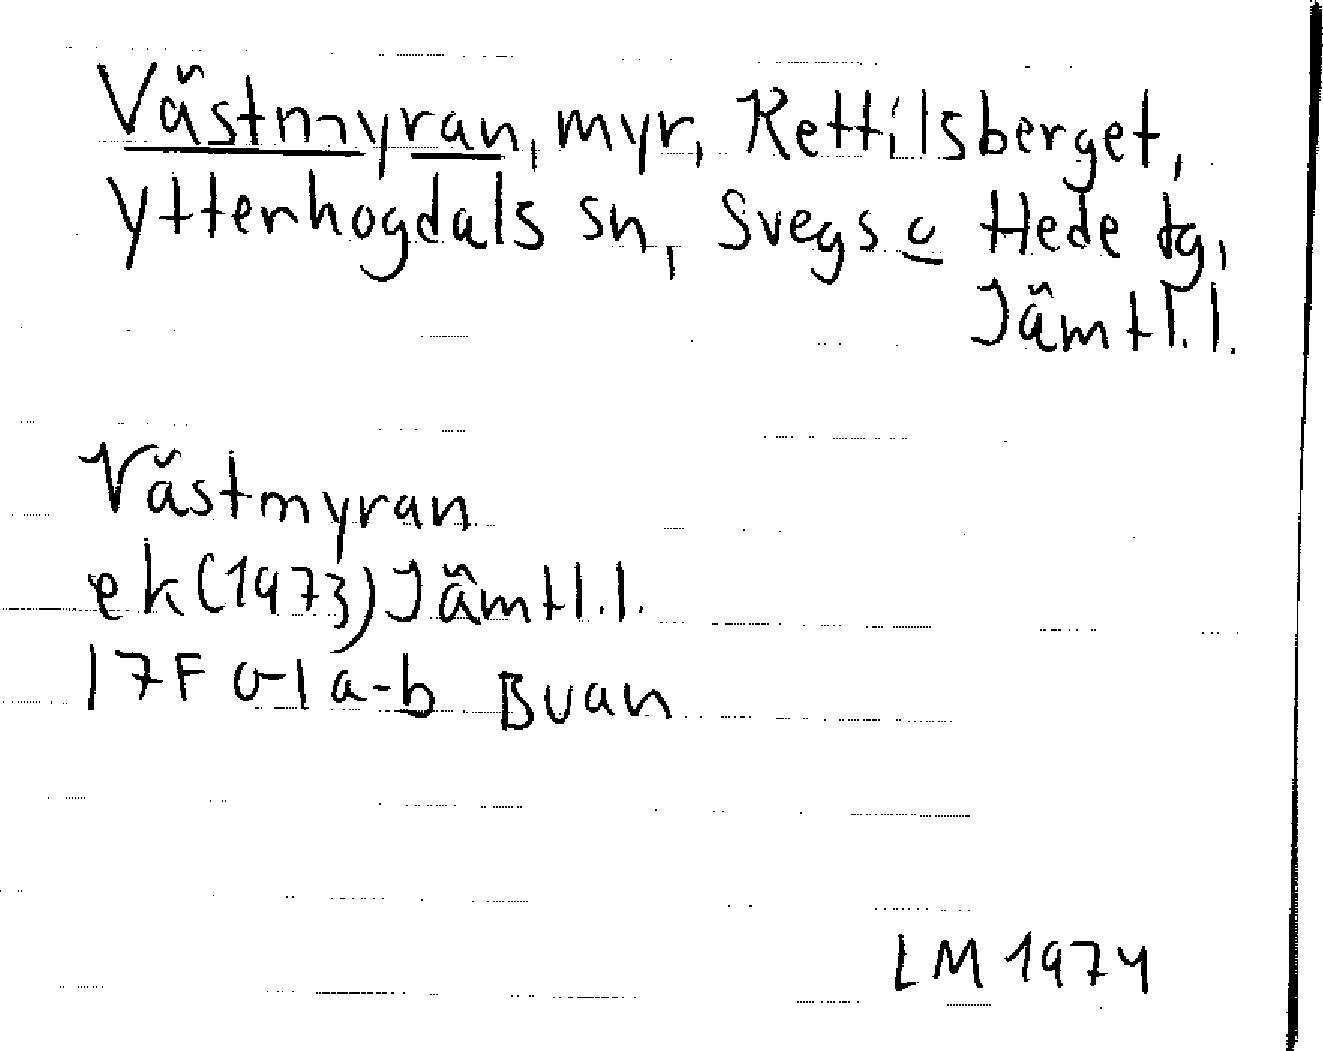 Västmyran, myr, Kettilsberget,
Ytterhogdals sn, Svegs o Hede tg,
Jämtl.l.
Västmyran
ek (1973) Jämtl.l.
17F 0-1 a-b Buan
LM 1974